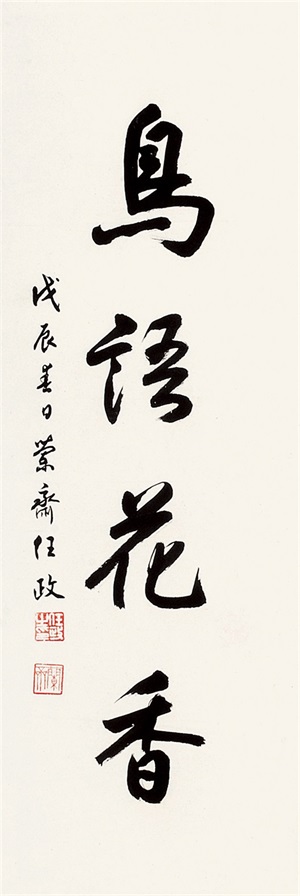 鳥語花香
戊辰春日蘭齋任政